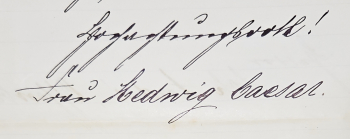 Hochachtungsvoll!
Frau Hedwig Caesar.